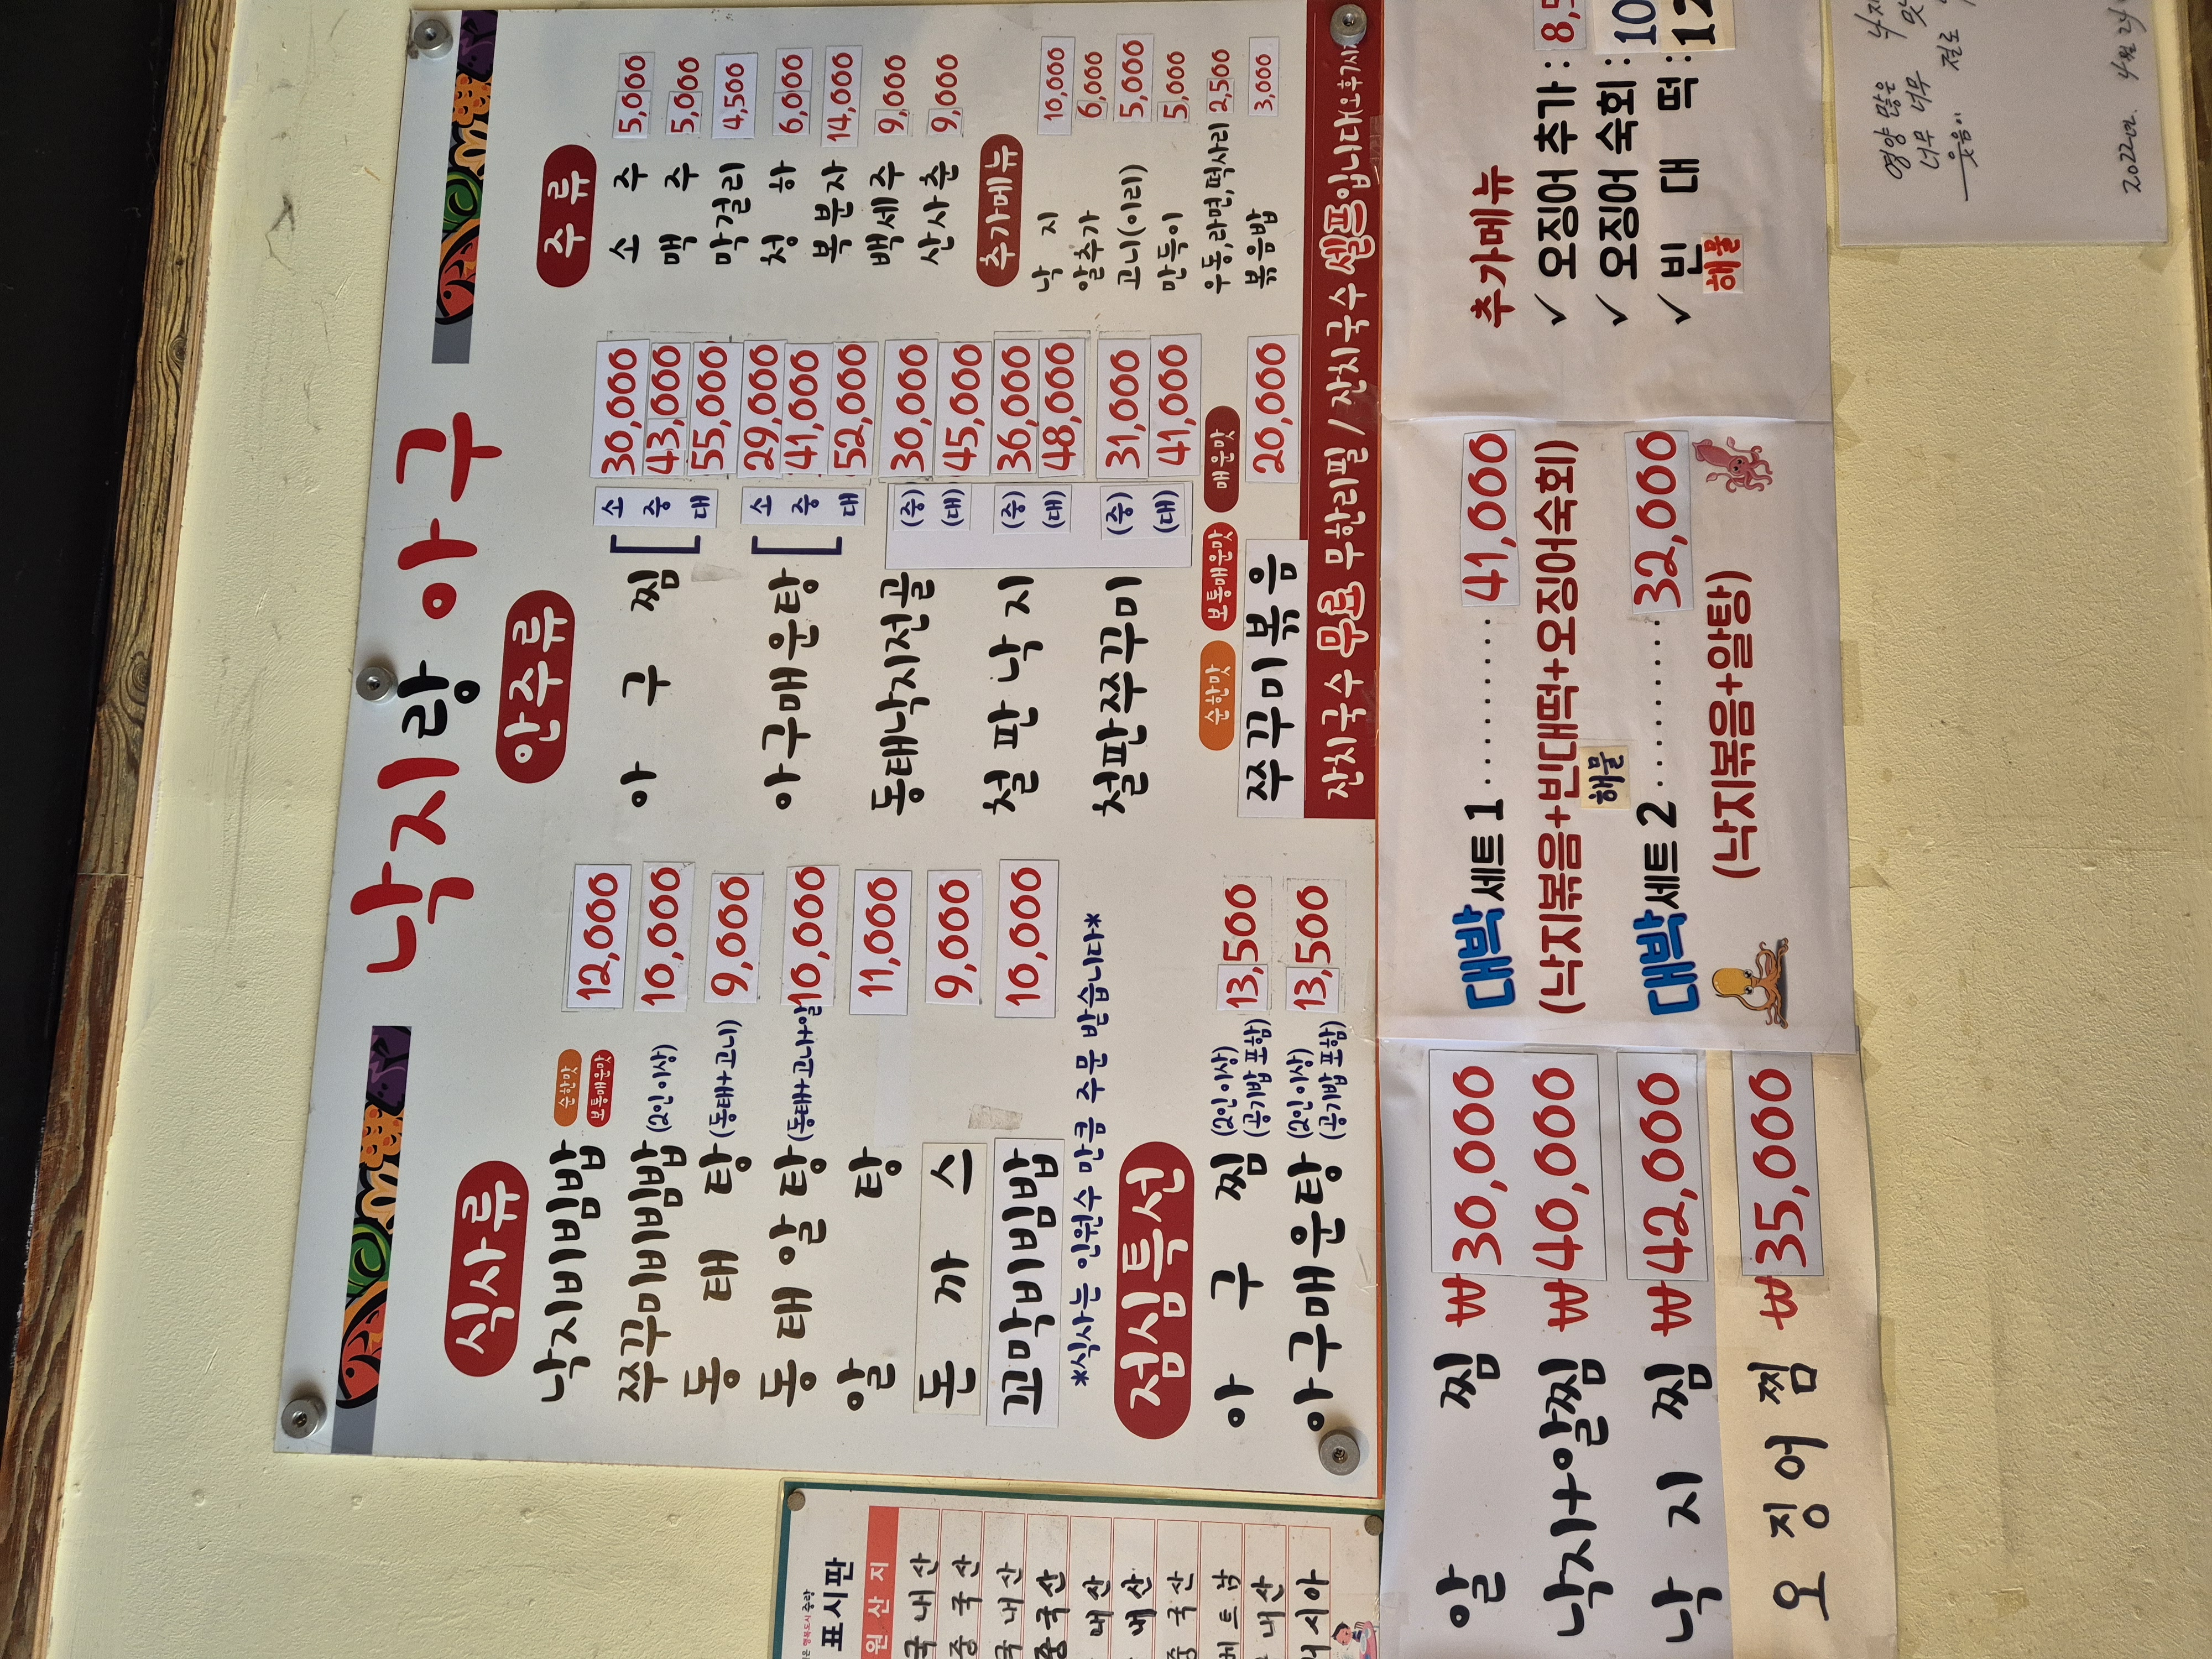 낙지랑 아구
식사류
낙지비빔밥 순한맛 보통매운맛 12,000
쭈꾸미비빔밥 (2인 이상) 10,000
동태탕 (동태+고니) 9,000
동태알탕 (동태+고니+알) 10,000
알탕 11,000
돈까스 9,000
꼬막비빔밥 10,000
*식사는 인원수 만큼 주문 받습니다*
점심특선
아구찜 (2인 이상) (공기밥 포함) 13,500
아구매운탕 (2인 이상) (공기밥 포함) 13,500
안주류
아구찜 [ 소 30,000
중 43,000
대 55,000
아구매운탕 [ 소 29,000
중 41,000
대 52,000
동태낙지전골 (중) 30,000
(대) 45,000
철판낙지 (중) 36,000
(대) 48,000
철판쭈꾸미 (중) 31,000
(대) 41,000
순한맛 보통매운맛 매운맛
쭈꾸미볶음 20,000
주류
소주 5,000
맥주 5,000
막걸리 4,500
청하 6,000
복분자 14,000
백세주 9,000
산사춘 9,000
추가메뉴
낙지 10,000
알추가 6,000
고니(이리) 5,000
만득이 5,000
우동,라면,떡사리 2,500
볶음밥 3,000
잔치국수 무료 무한리필 / 잔치국수 셀프입니다
알찜 ₩30,000
낙지+알찜 ₩40,000
낙지찜 ₩42,000
오징어찜 ₩35,000
대박세트1 ......... 41,000
(낙지볶음+빈대떡+오징어숙회)
해물
대박세트2 ......... 32,000
(낙지볶음+알탕)
추가메뉴
✓ 오징어 추가 : 8,5
✓ 오징어 숙회 : 10
✓ 빈대떡 : 12
해물
표시판
원산지
국내산
중국산
국내산
중국산
내산
내산
중국산
베트남
내산
러시아
영양 많은
너무 너무
2022. 4월 24